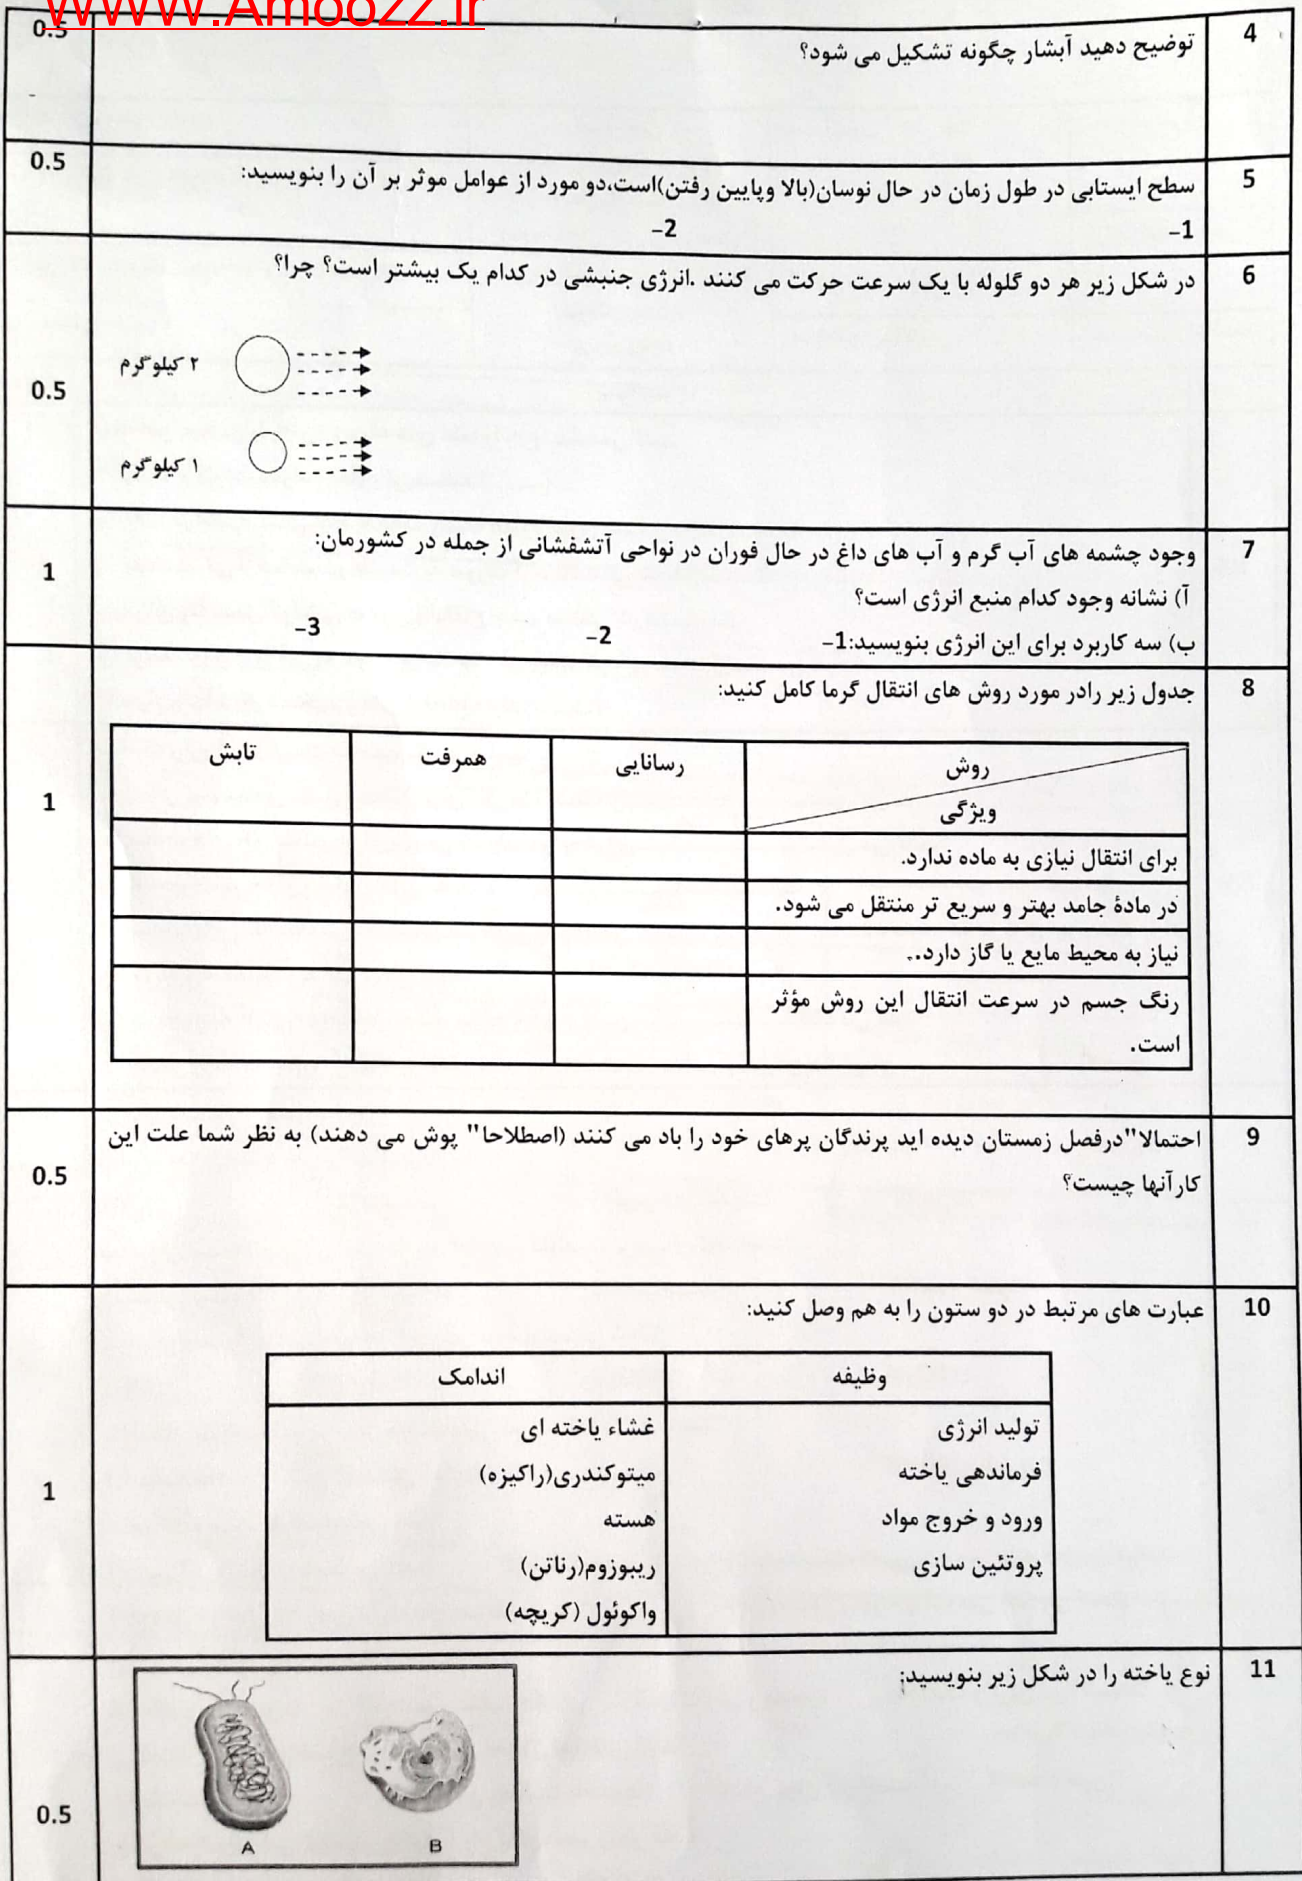 WWW.Amoozz.ir
4
توضیح دهید آبشار چگونه تشکیل می شود؟
0.5
5
سطح ایستابی در طول زمان در حال نوسان(بالا وپایین رفتن)است،دو مورد از عوامل موثر بر آن را بنویسید:
0.5
1- 2-
6
در شکل زیر هر دو گلوله با یک سرعت حرکت می کنند .انرژی جنبشی در کدام یک بیشتر است؟ چرا؟
۲ کیلوگرم
0.5
۱ کیلوگرم
7
وجود چشمه های آب گرم و آب های داغ در حال فوران در نواحی آتشفشانی از جمله در کشورمان:
1
آ) نشانه وجود کدام منبع انرژی است؟
ب) سه کاربرد برای این انرژی بنویسید:1- 2- 3-
8
جدول زیر رادر مورد روش های انتقال گرما کامل کنید:
1
روش
ویژگی
رسانایی
همرفت
تابش
برای انتقال نیازی به ماده ندارد.
در مادۀ جامد بهتر و سریع تر منتقل می شود.
نیاز به محیط مایع یا گاز دارد..
رنگ جسم در سرعت انتقال این روش مؤثر
است.
9
احتمالا"درفصل زمستان دیده اید پرندگان پرهای خود را باد می کنند (اصطلاحا" پوش می دهند) به نظر شما علت این
کارآنها چیست؟
0.5
10
عبارت های مرتبط در دو ستون را به هم وصل کنید:
1
وظیفه
اندامک
تولید انرژی
غشاء یاخته ای
فرماندهی یاخته
میتوکندری(راکیزه)
ورود و خروج مواد
هسته
پروتئین سازی
ریبوزوم(رناتن)
واکوئول (کریچه)
11
نوع یاخته را در شکل زیر بنویسید:
0.5
A
B